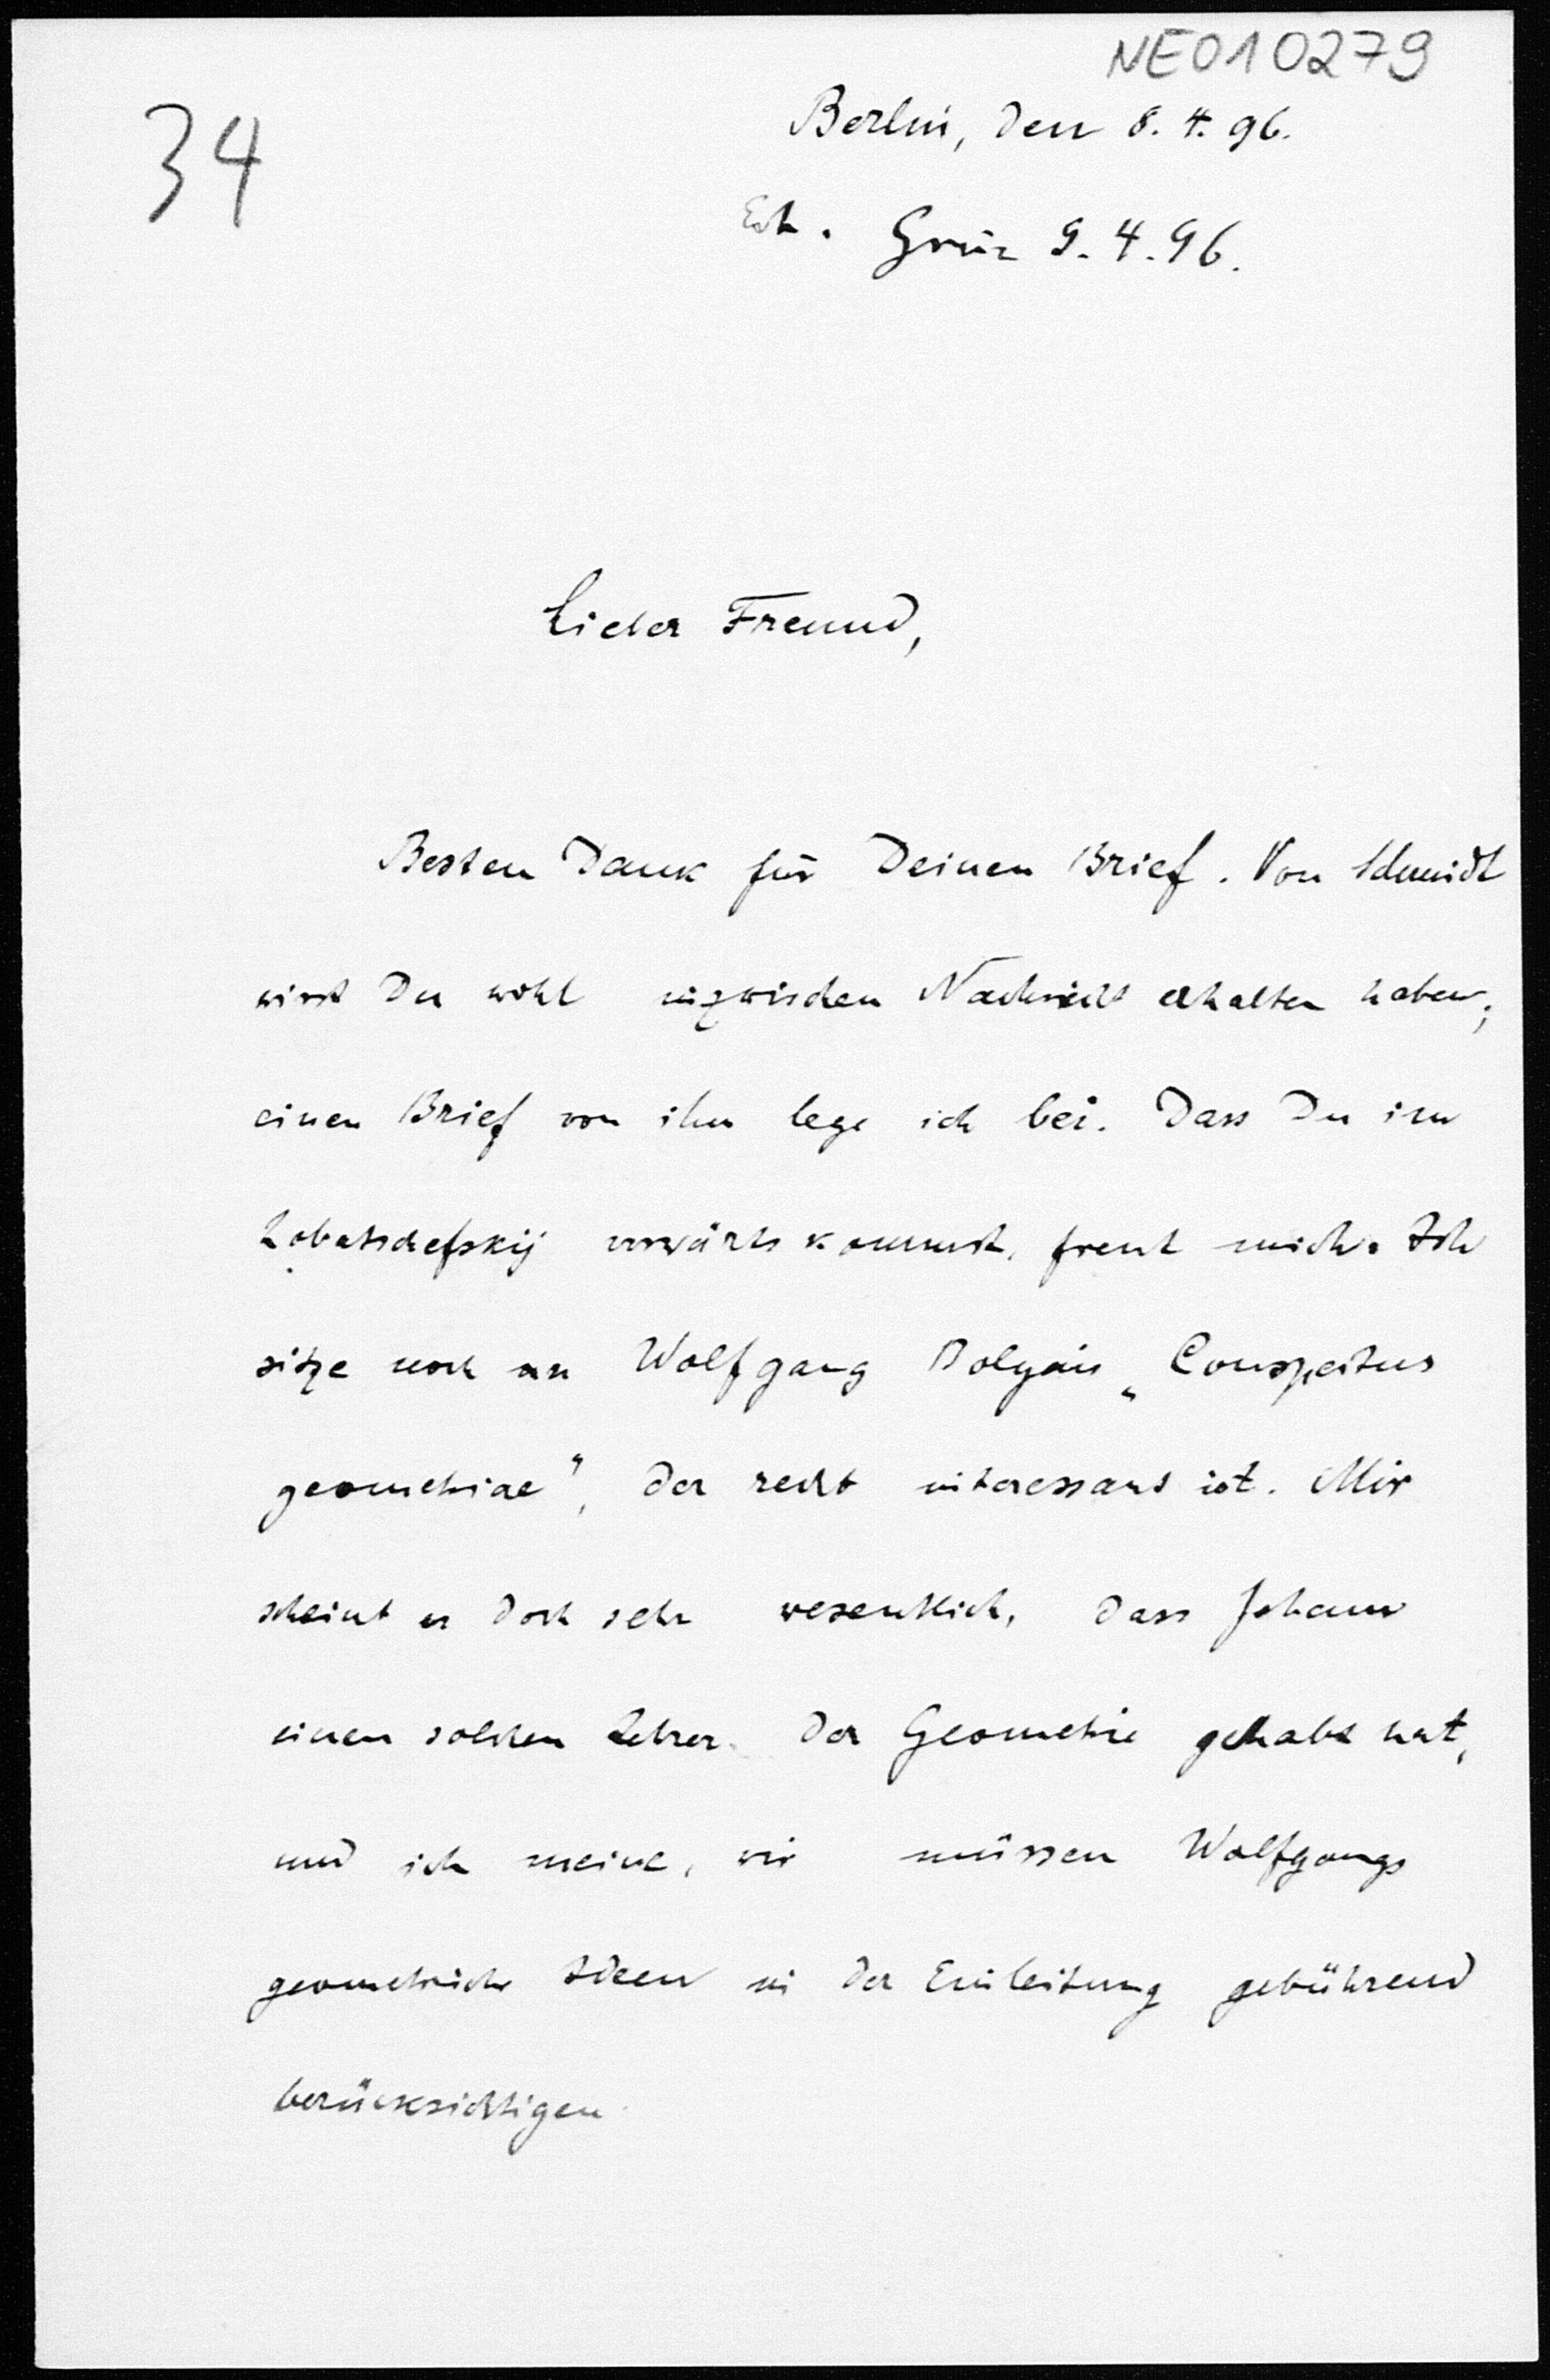 NE010279
34
Berlin, den 8. 4. 96.
Erh. Grün 9. 4. 96.
Lieber Freund,
Besten Dank für Deinen Brief. Von Schmidt
wirst Du wohl inzwischen Nachricht erhalten haben;
einen Brief von ihm lege ich bei. Dass Du im
Lobatschefskij vorwärts kommst, freut mich. Ich
sitze noch an Wolfgang Bolyais „Conspectus
geometriae", der recht interessant ist. Mir
scheint es doch sehr wesentlich, dass Johann
einen solchen Lehrer der Geometrie gehabt hat,
und ich meine, wir müssen Wolfgangs
geometrische Ideen in der Einleitung gebührend
berücksichtigen.